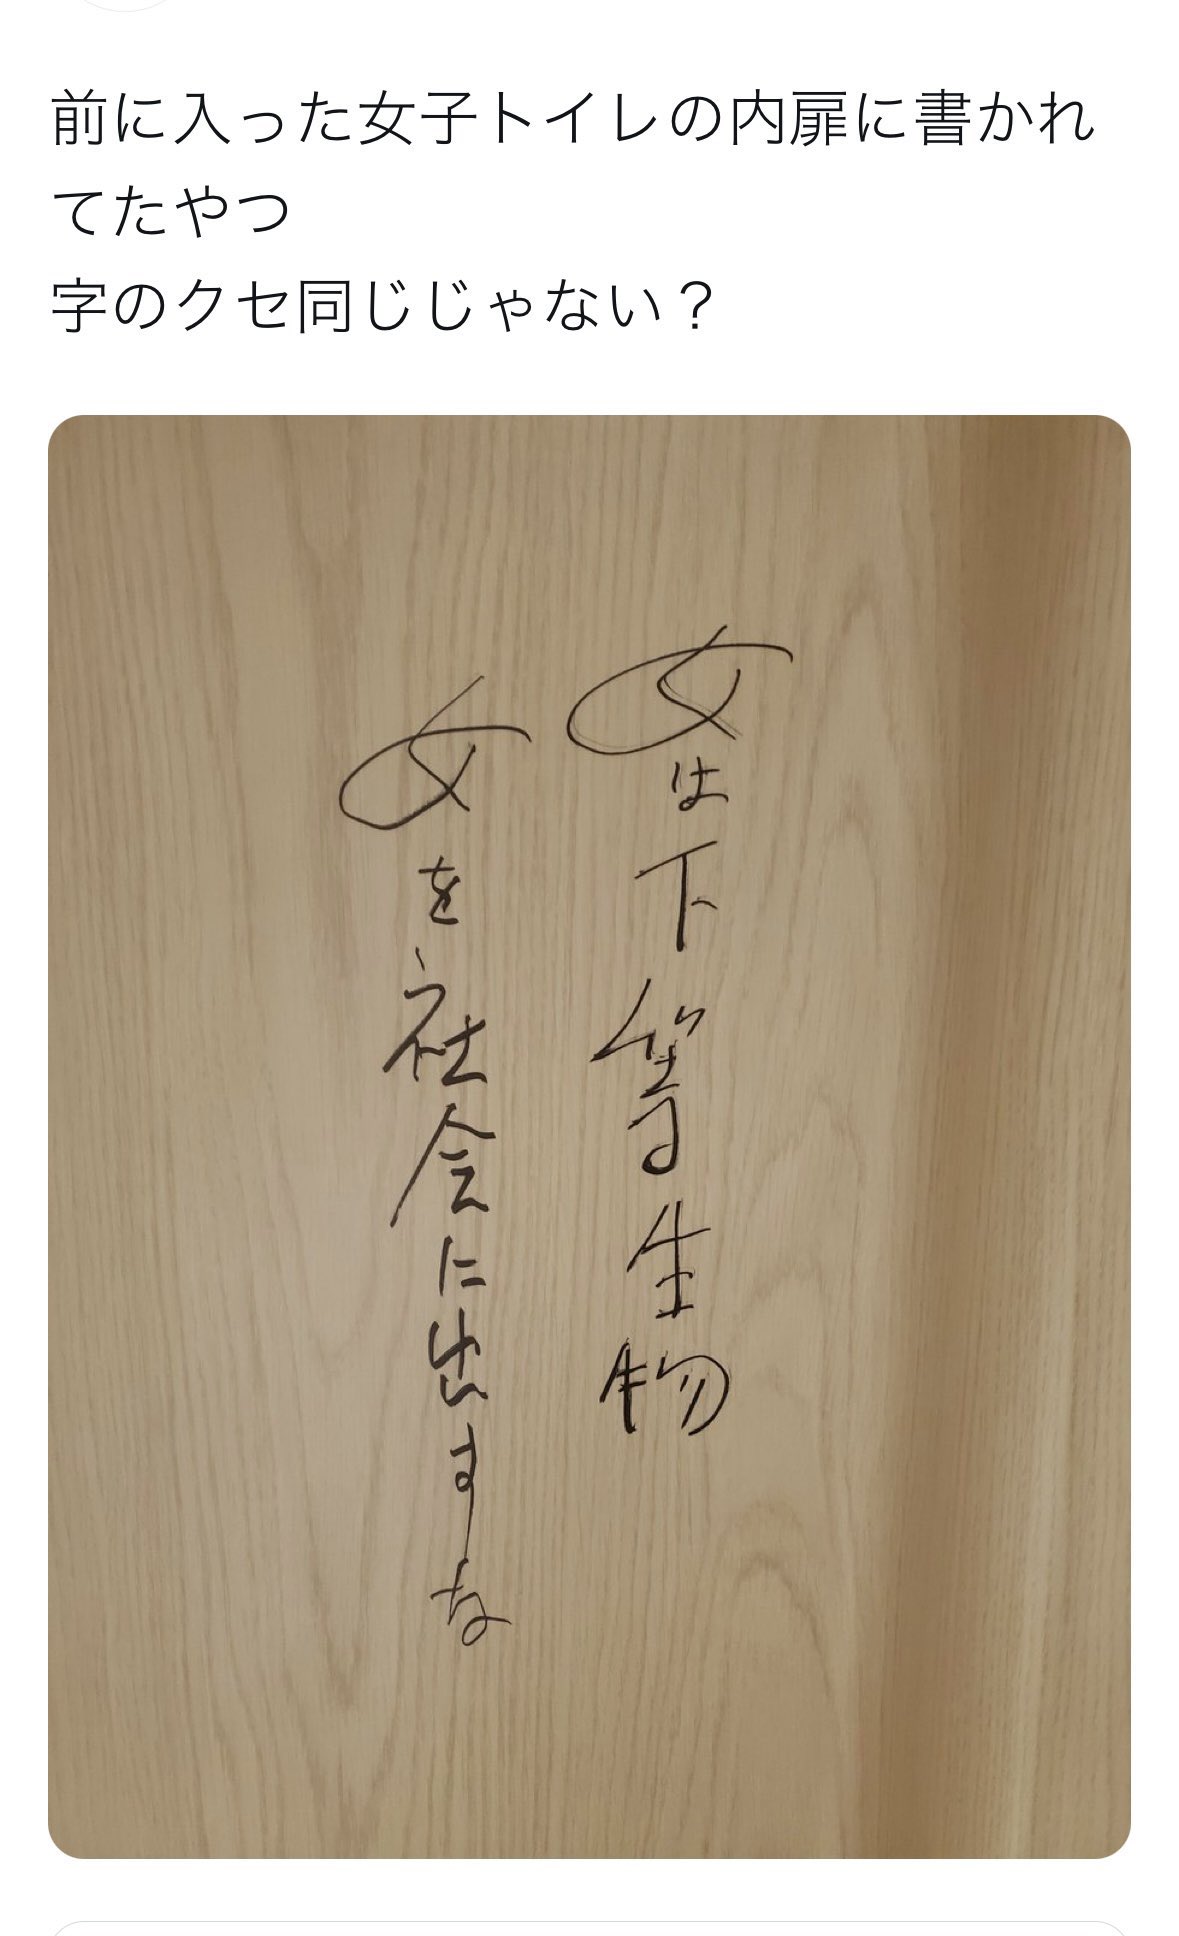 前に入った女子トイレの内扉に書かれ
てたやつ
字のクセ同じじゃない？
女は下等生物
女を社会に出すな